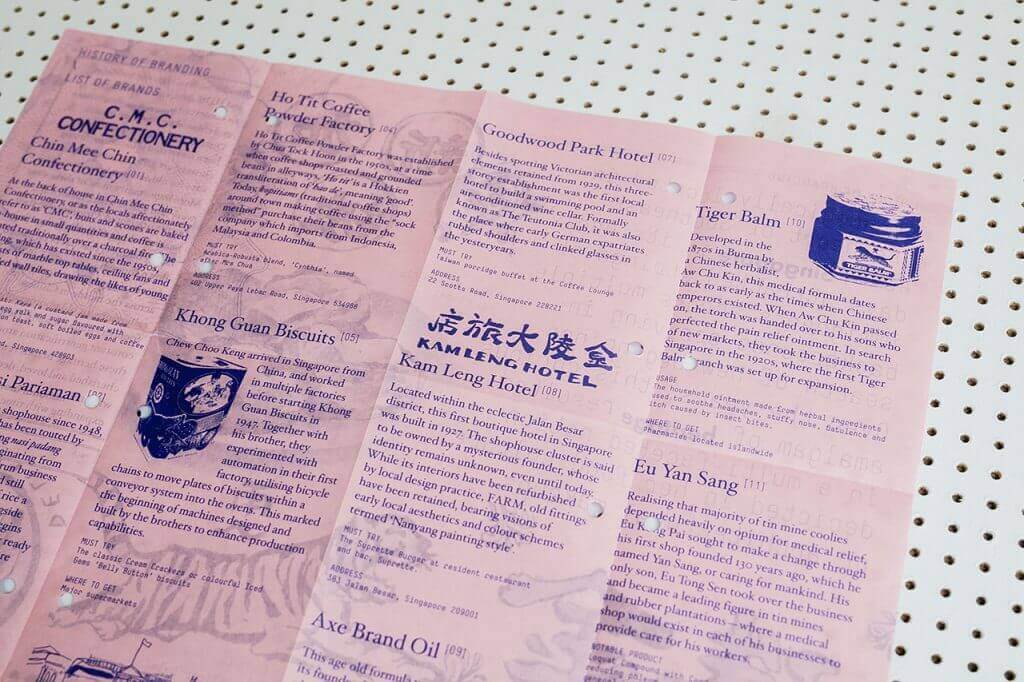 HISTORY OF BRANDING
LIST OF BRANDS
C.M.C.
CONFECTIONERY
Chin Mee Chin
Confectionery [01]
At the back of house in Chin Mee Chin
Confectionery, or as the locals affectionately
refer to as 'CMC', buns and scones are baked
in-house in small quantities and coffee is
traditionally over a charcoal fire. The
, which has existed since the 1950s,
of marble top tables, ceiling fans and
wall tiles, drawing the likes of young
Kaya (a custard jam made from
egg yolk and sugar flavoured with
on toast, soft boiled eggs and coffee
, Singapore 428903
Pariaman
shophouse since 1948,
has been touted by
nasi padang
originating from
run business
rice a
ready
Ho Tit Coffee
Powder Factory [04]
Ho Tit Coffee Powder Factory was established
by Chua Tock Hoon in the 1950s, at a time
when coffee shops roasted and grounded
coffee in alleyways. 'Ho tit' is a Hokkien
transliteration of 'hao de', meaning 'good'.
Today, kopitiams (traditional coffee shops)
around town making coffee using the "sock
method" purchase their beans from the
company which imports from Indonesia,
Malaysia and Colombia.
MUST TRY
Arabica-Robusta blend, 'Cynthia', named
after Mrs Chua
402 Upper Paya Lebar Road, Singapore 534988
Khong Guan Biscuits [05]
Chew Choo Keng arrived in Singapore from
China, and worked
in multiple factories
before starting Khong
Guan Biscuits in
1947. Together with
his brother, they
experimented with
automation in their first
factory, utilising bicycle
chains to move plates of biscuits within a
conveyor system into the ovens. This marked
the beginning of machines designed and
built by the brothers to enhance production
capabilities.
MUST TRY
The classic Cream Crackers or colourful Iced
Gems 'Belly Button' biscuits
WHERE TO GET
Major supermarkets
Goodwood Park Hotel [07]
Besides spotting Victorian architectural
elements retained from 1929, this three-
storey establishment was the first local
hotel to build a swimming pool and an
air-conditioned wine cellar. Formally
known as The Teutonia Club, it was also
the place where early German expatriates
rubbed shoulders and clinked glasses in
the yesteryear.
MUST TRY
Taiwan porridge buffet at the Coffee Lounge
ADDRESS
22 Scotts Road, Singapore 228221
店旅大陵金
KAM LENG HOTEL
Kam Leng Hotel [08]
Located within the eclectic Jalan Besar
district, this first boutique hotel in Singapore
was built in 1927. The shophouse cluster is said
to be owned by a mysterious founder, whose
identity remains unknown, even until today.
While its interiors have been refurbished
by local design practice, FARM, old fittings
have been retained, bearing visions of
early local aesthetics and colour schemes
termed 'Nanyang painting style'.
MUST TRY
The Suprette Burger at resident restaurant
and bar, Suprette.
ADDRESS
383 Jalan Besar, Singapore 209001
Axe Brand Oil [09]
This age old formula
its found
Tiger Balm [10]
TIGER BALM
Developed in the
1870s in Burma by
a Chinese herbalist
Aw Chu Kin, this medical formula dates
back to as early as the times when Chinese
emperors existed. When Aw Chu Kin passed
on, the torch was handed over to his sons who
perfected the pain relief ointment. In search
of new markets, they took the business to
Singapore in the 1920s, where the first Tiger
Balm branch was set up for expansion.
USAGE
The household ointment made from herbal ingredients
used to soothe headaches, stuffy nose, flatulence and
itch caused by insect bites.
WHERE TO GET
Pharmacies located islandwide
Eu Yan Sang [11]
Realising that majority of tin mine coolies
depended heavily on opium for medical relief,
Eu Kong Pai sought to make a change through
his first shop founded 130 years ago, which he
named Yan Sang, or caring for mankind. His
only son, Eu Tong Sen took over the business
and became a leading figure in tin mines
and rubber plantations – where a medical
shop would exist in each of his businesses to
provide care for his workers.
NOTABLE PRODUCT
Loquat Compound with
reducing phlegm